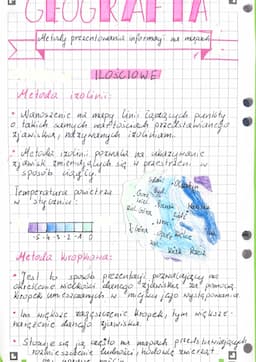 GEOGRAFIA
Metody prezentowania informacji na mapach
ILOŚCIOWE
Metoda izolinii:
• Nanoszenie na mapy linii łączących punkty
o takich samych wartościach przedstawianego
zjawiska, nazywanych izoliniami.
• Metoda izolinii pozwala na ukazywanie
zjawisk zmieniających się w przestrzeni w
sposób ciągły.
Temperatura powietrza
w styczniu:
-5 -4 -3 -2 -1 0
Olsztyn
Łódź
Kielce
Metoda kropkowa:
• Jest to sposób prezentacji pozwalający na
określenie wielkości danego zjawiska za pomocą
kropek umieszczanych w miejscu jego występowania.
• Im większe zagęszczenie kropek, tym większe
natężenie danego zjawiska.
• Stosuje się ją często na mapach przedstawiających
rozmieszczenie ludności, hodowlę zwierząt